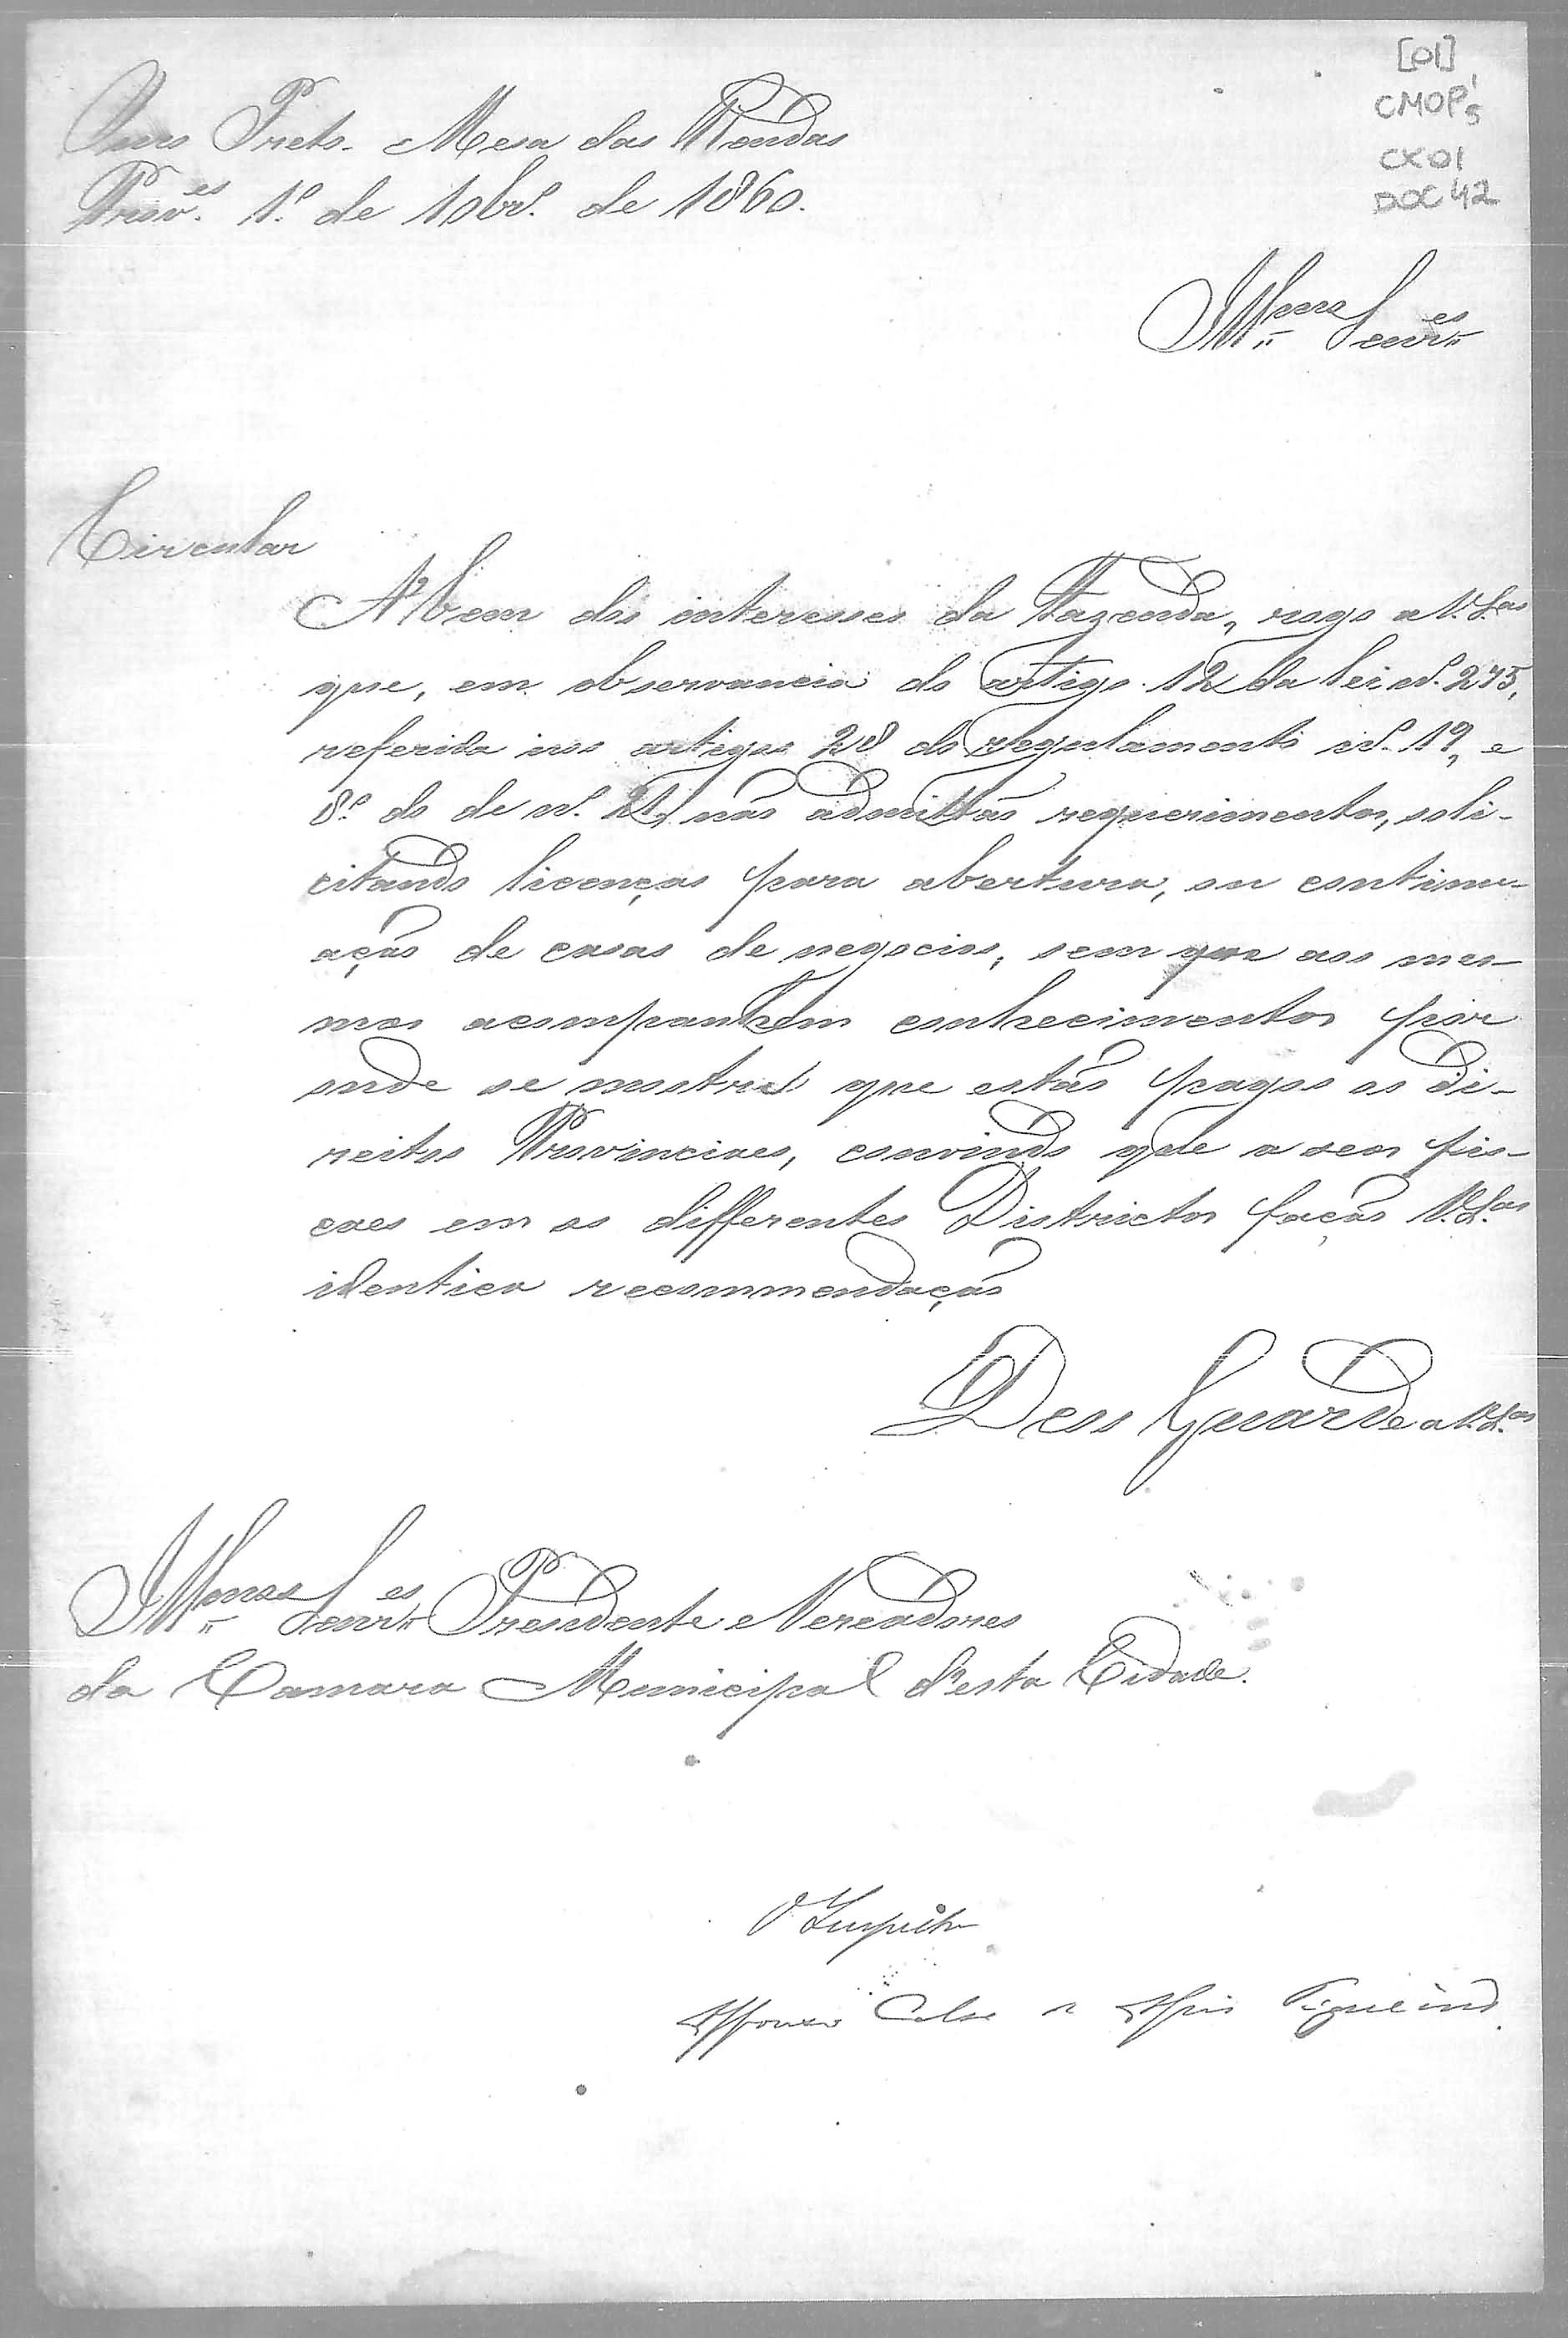 [01]
CMOP
CX01
DOC 42
Ouro Preto. Mesa das Rendas
Prov.es 1º de 10br.º de 1860.
Illmos Senr.es
Circular
A bem dos interesses da Fazenda, rogo a V.Sas
que, em observancia do artigo 12 da lei nº 275,
referida nos artigos 28 do regulamento nº 19, e
8º do de nº 21, não admittão requerimentos, soli-
citando licenças para abertura, ou continu-
ação de casas de negocios, sem que aos mes-
mos acompanhem conhecimentos por
onde se mostre que estão pagos os di-
reitos Provinciaes, convindo que a seus fis-
caes em os differentes Districtos fação V.Sas
identica recommendação
Deos Guarde a V.Sas
Illmos Senr.es Presidente e Vereadores
da Camara Municipal d'esta Cidade.
O Inspector
Affonso Celso de Assis Figueiredo